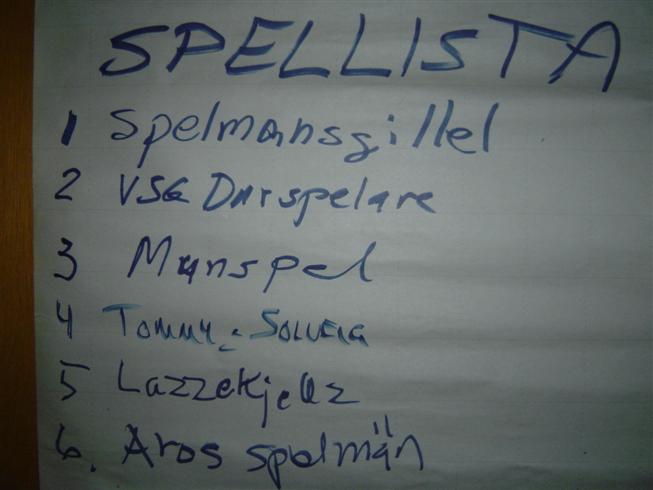 SPELLISTA
1 Spelmansgillel
2 VSG Durspelare
3 Munspel
4 Tommy & Solveig
5 Lazzekjellz
6. Aros spelmän